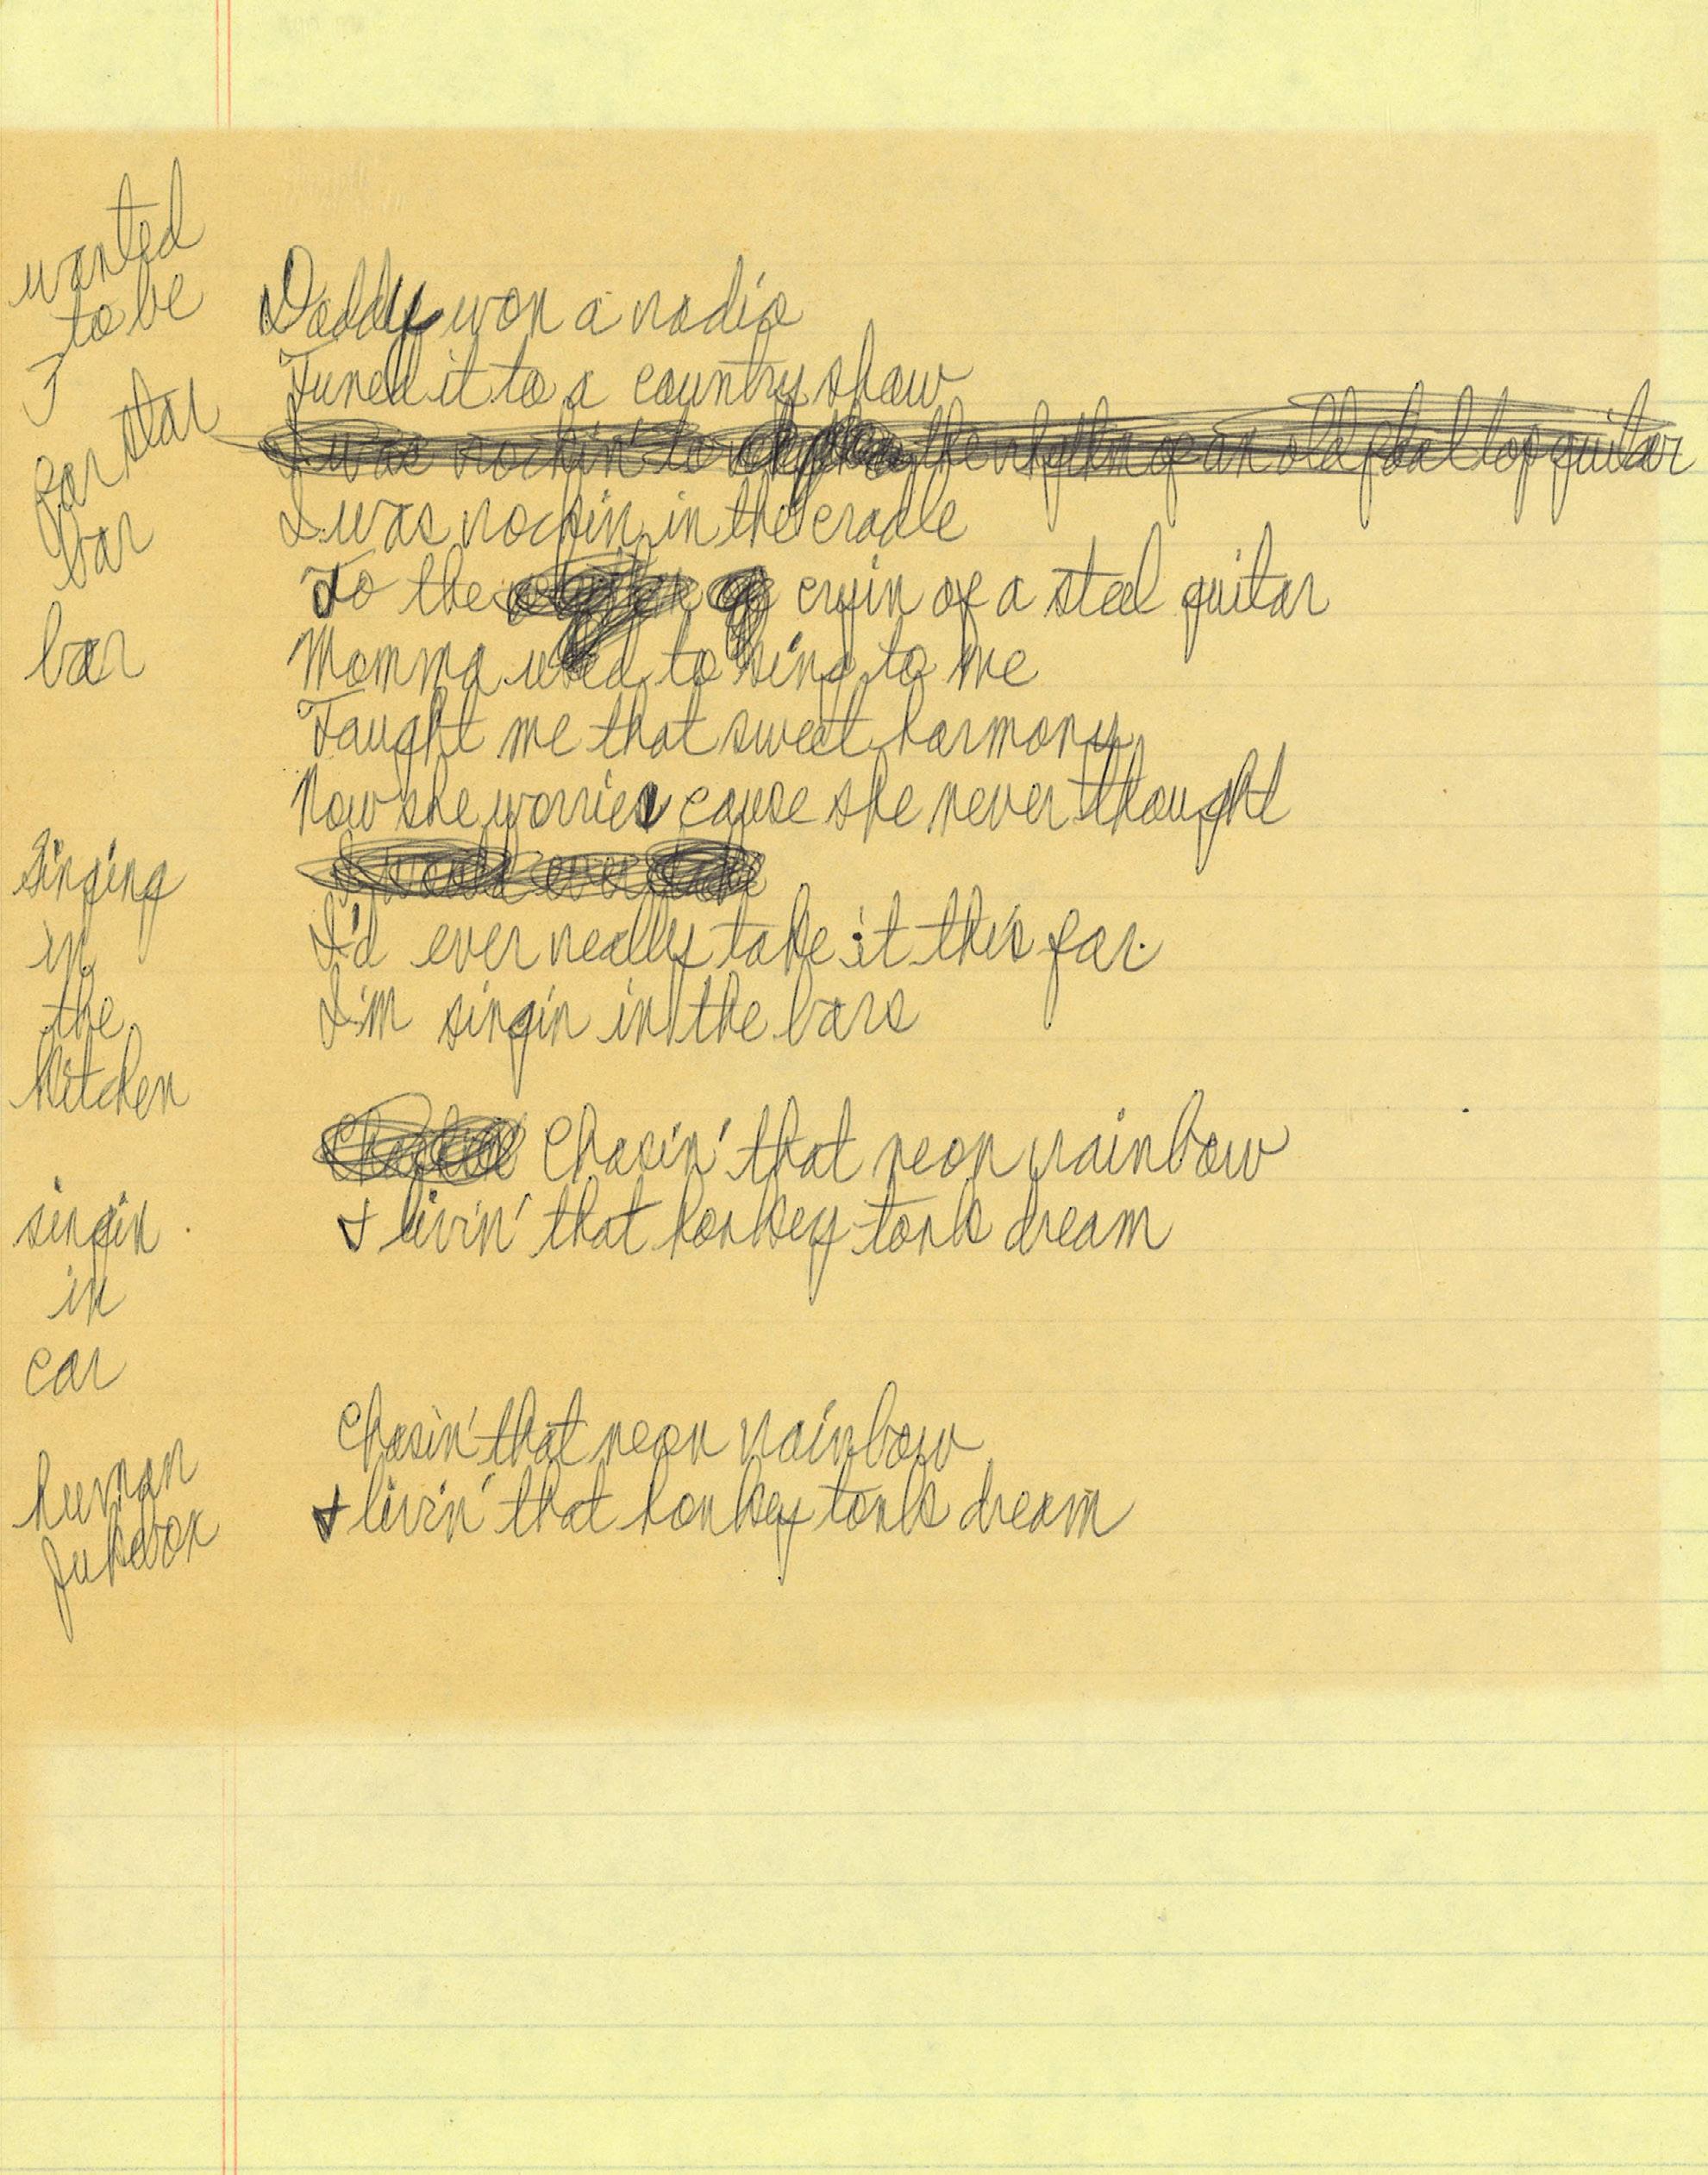 wanted
to be
I
far star
bar
bar
singing
in
the
kitchen
singin
in
car
human
jukebox
Daddy won a radio
Tuned it to a country show
I was rockin' to the rhythm of an old flat top guitar
I was rockin in the cradle
To the cryin of a steel guitar
Momma used to sing to me
Taught me that sweet harmony
Now she worries cause she never thought
I would ever take
I'd ever really take it this far.
I'm singin in the bars
Chasin' that neon rainbow
+ livin' that honkey tonk dream
Chasin' that neon rainbow
+ livin' that honkey tonk dream